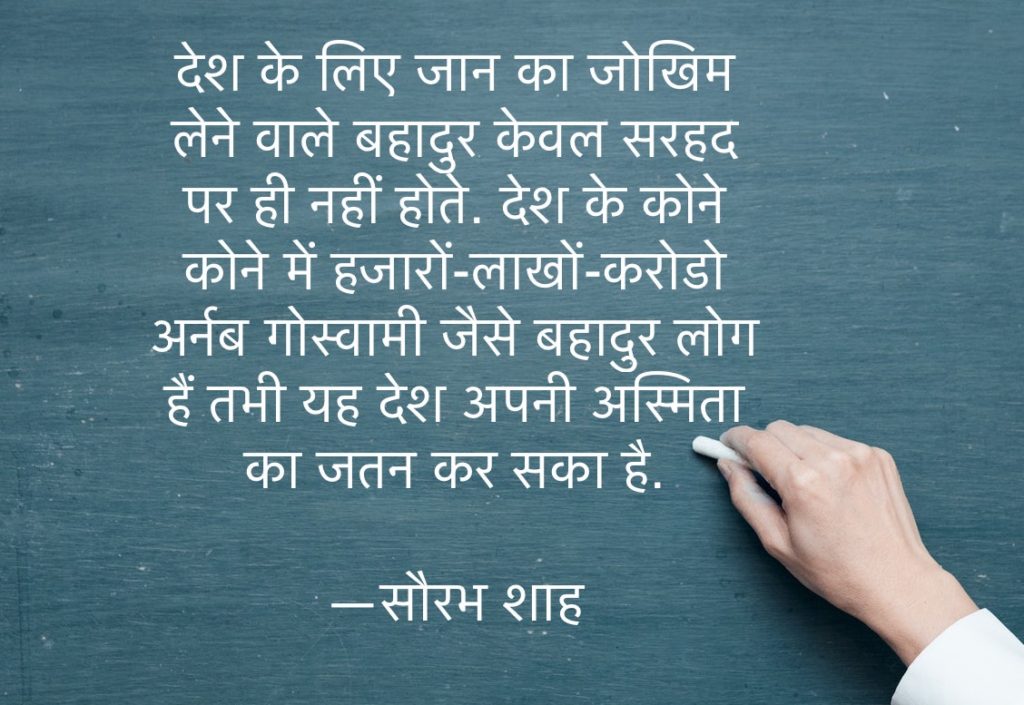 देश के लिए जान का जोखिम
लेने वाले बहादुर केवल सरहद
पर ही नहीं होते. देश के कोने
कोने में हजारों-लाखों-करोडो
अर्नब गोस्वामी जैसे बहादुर लोग
हैं तभी यह देश अपनी अस्मिता
का जतन कर सका है.
—सौरभ शाह